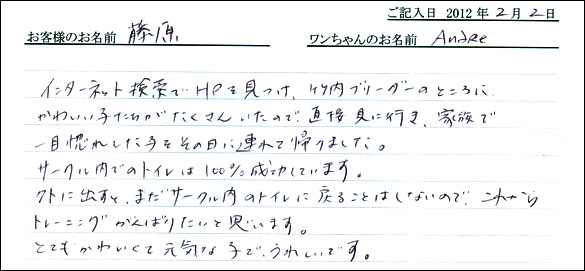 ご記入日 2012年2月2日
お客様のお名前 藤原 ワンちゃんのお名前 Andre
インターネット検索でHPを見つけ、竹内ブリーダーのところに
かわいい子たちがたくさんいたので直接見に行き、家族で
一目惚れした子をその日に連れて帰りました。
サークル内でのトイレは100%成功しています。
外に出すと、まだサークル内のトイレに戻ることはしないので、これから
トレーニングがんばりたいと思います。
とてもかわいくて元気な子で、うれしいです。